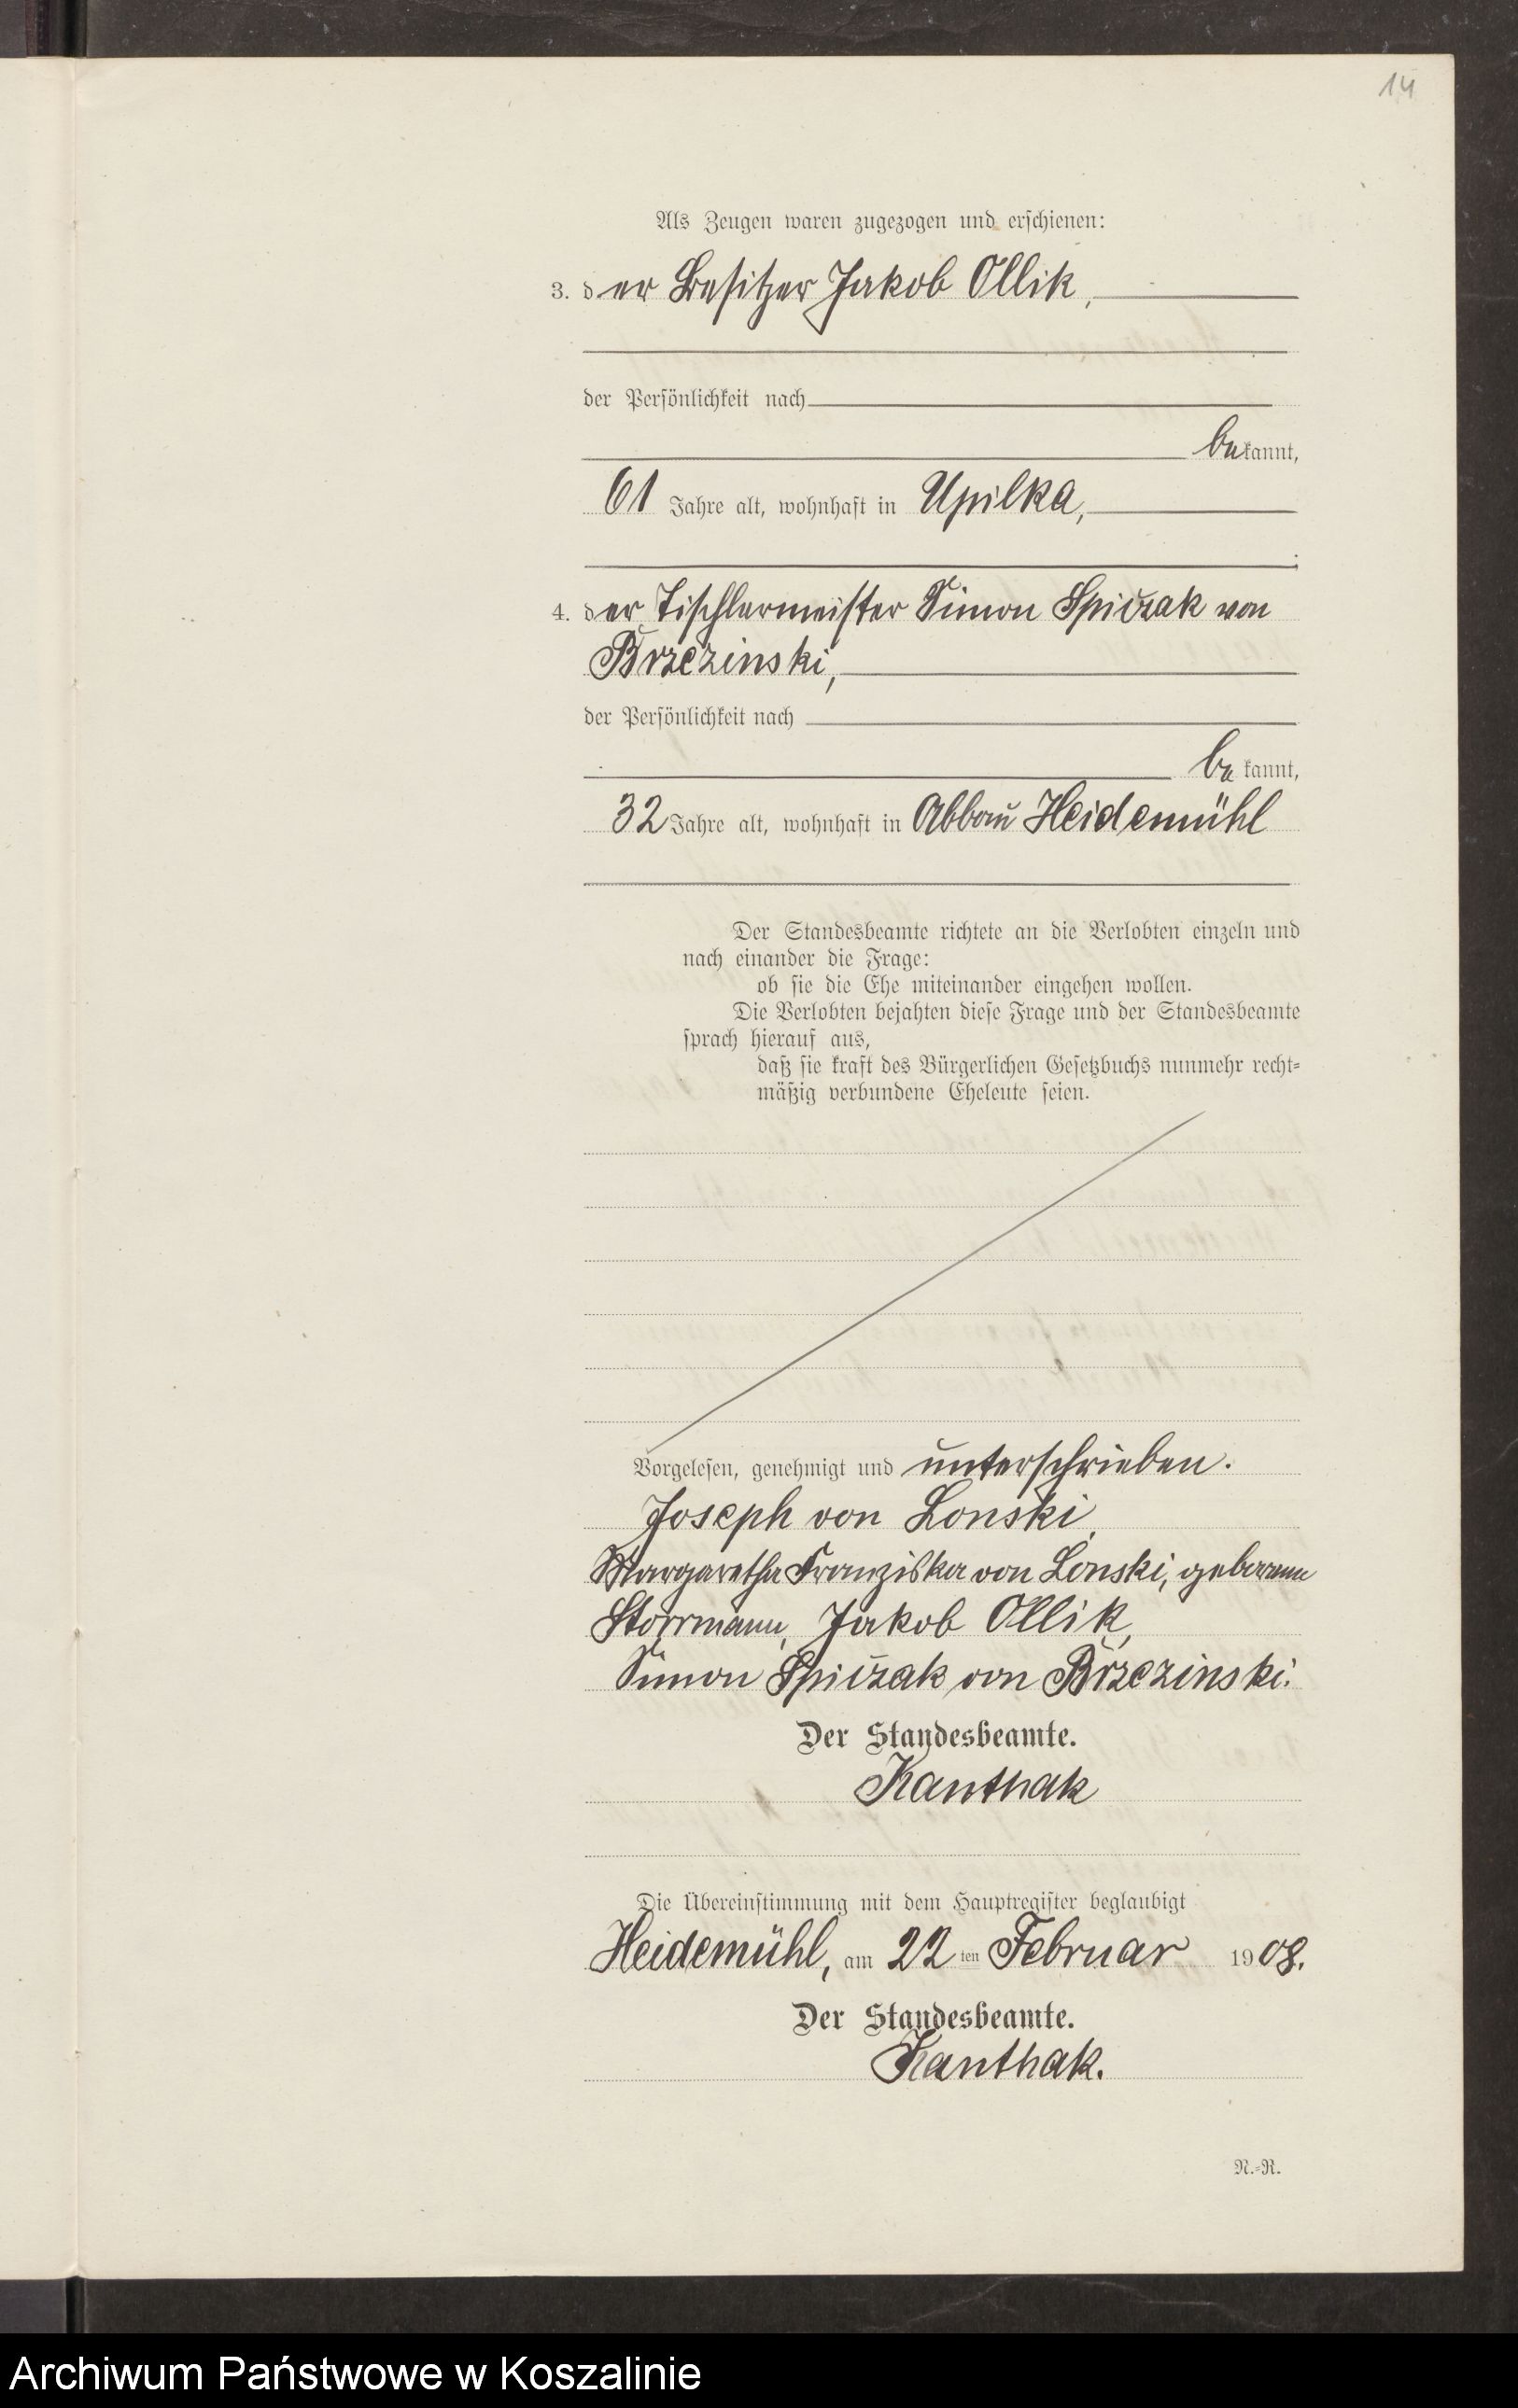 14
Als Zeugen waren zugezogen und erschienen:
3. der Besitzer Jakob Ollik,
der Persönlichkeit nach
bekannt,
61 Jahre alt, wohnhaft in Upilka,
4. der Tischlermeister Simon Spiczak von
Brzezinski,
der Persönlichkeit nach
bekannt,
32 Jahre alt, wohnhaft in Abbau Heidemühl
Der Standesbeamte richtete an die Verlobten einzeln und
nach einander die Frage:
ob sie die Ehe miteinander eingehen wollen.
Die Verlobten bejahten diese Frage und der Standesbeamte
sprach hierauf aus,
daß sie kraft des Bürgerlichen Gesetzbuchs nunmehr recht-
mäßig verbundene Eheleute seien.
Vorgelesen, genehmigt und unterschrieben.
Joseph von Lonski,
Margaretha Franziska von Lonski, geborenen
Storrmann, Jakob Ollik,
Simon Spiczak von Brzezinski.
Der Standesbeamte.
Kanthak
Die Übereinstimmung mit dem Hauptregister beglaubigt
Heidemühl, am 22 ten Februar 1908.
Der Standesbeamte.
Kanthak.
N.-R.
Archiwum Państwowe w Koszalinie